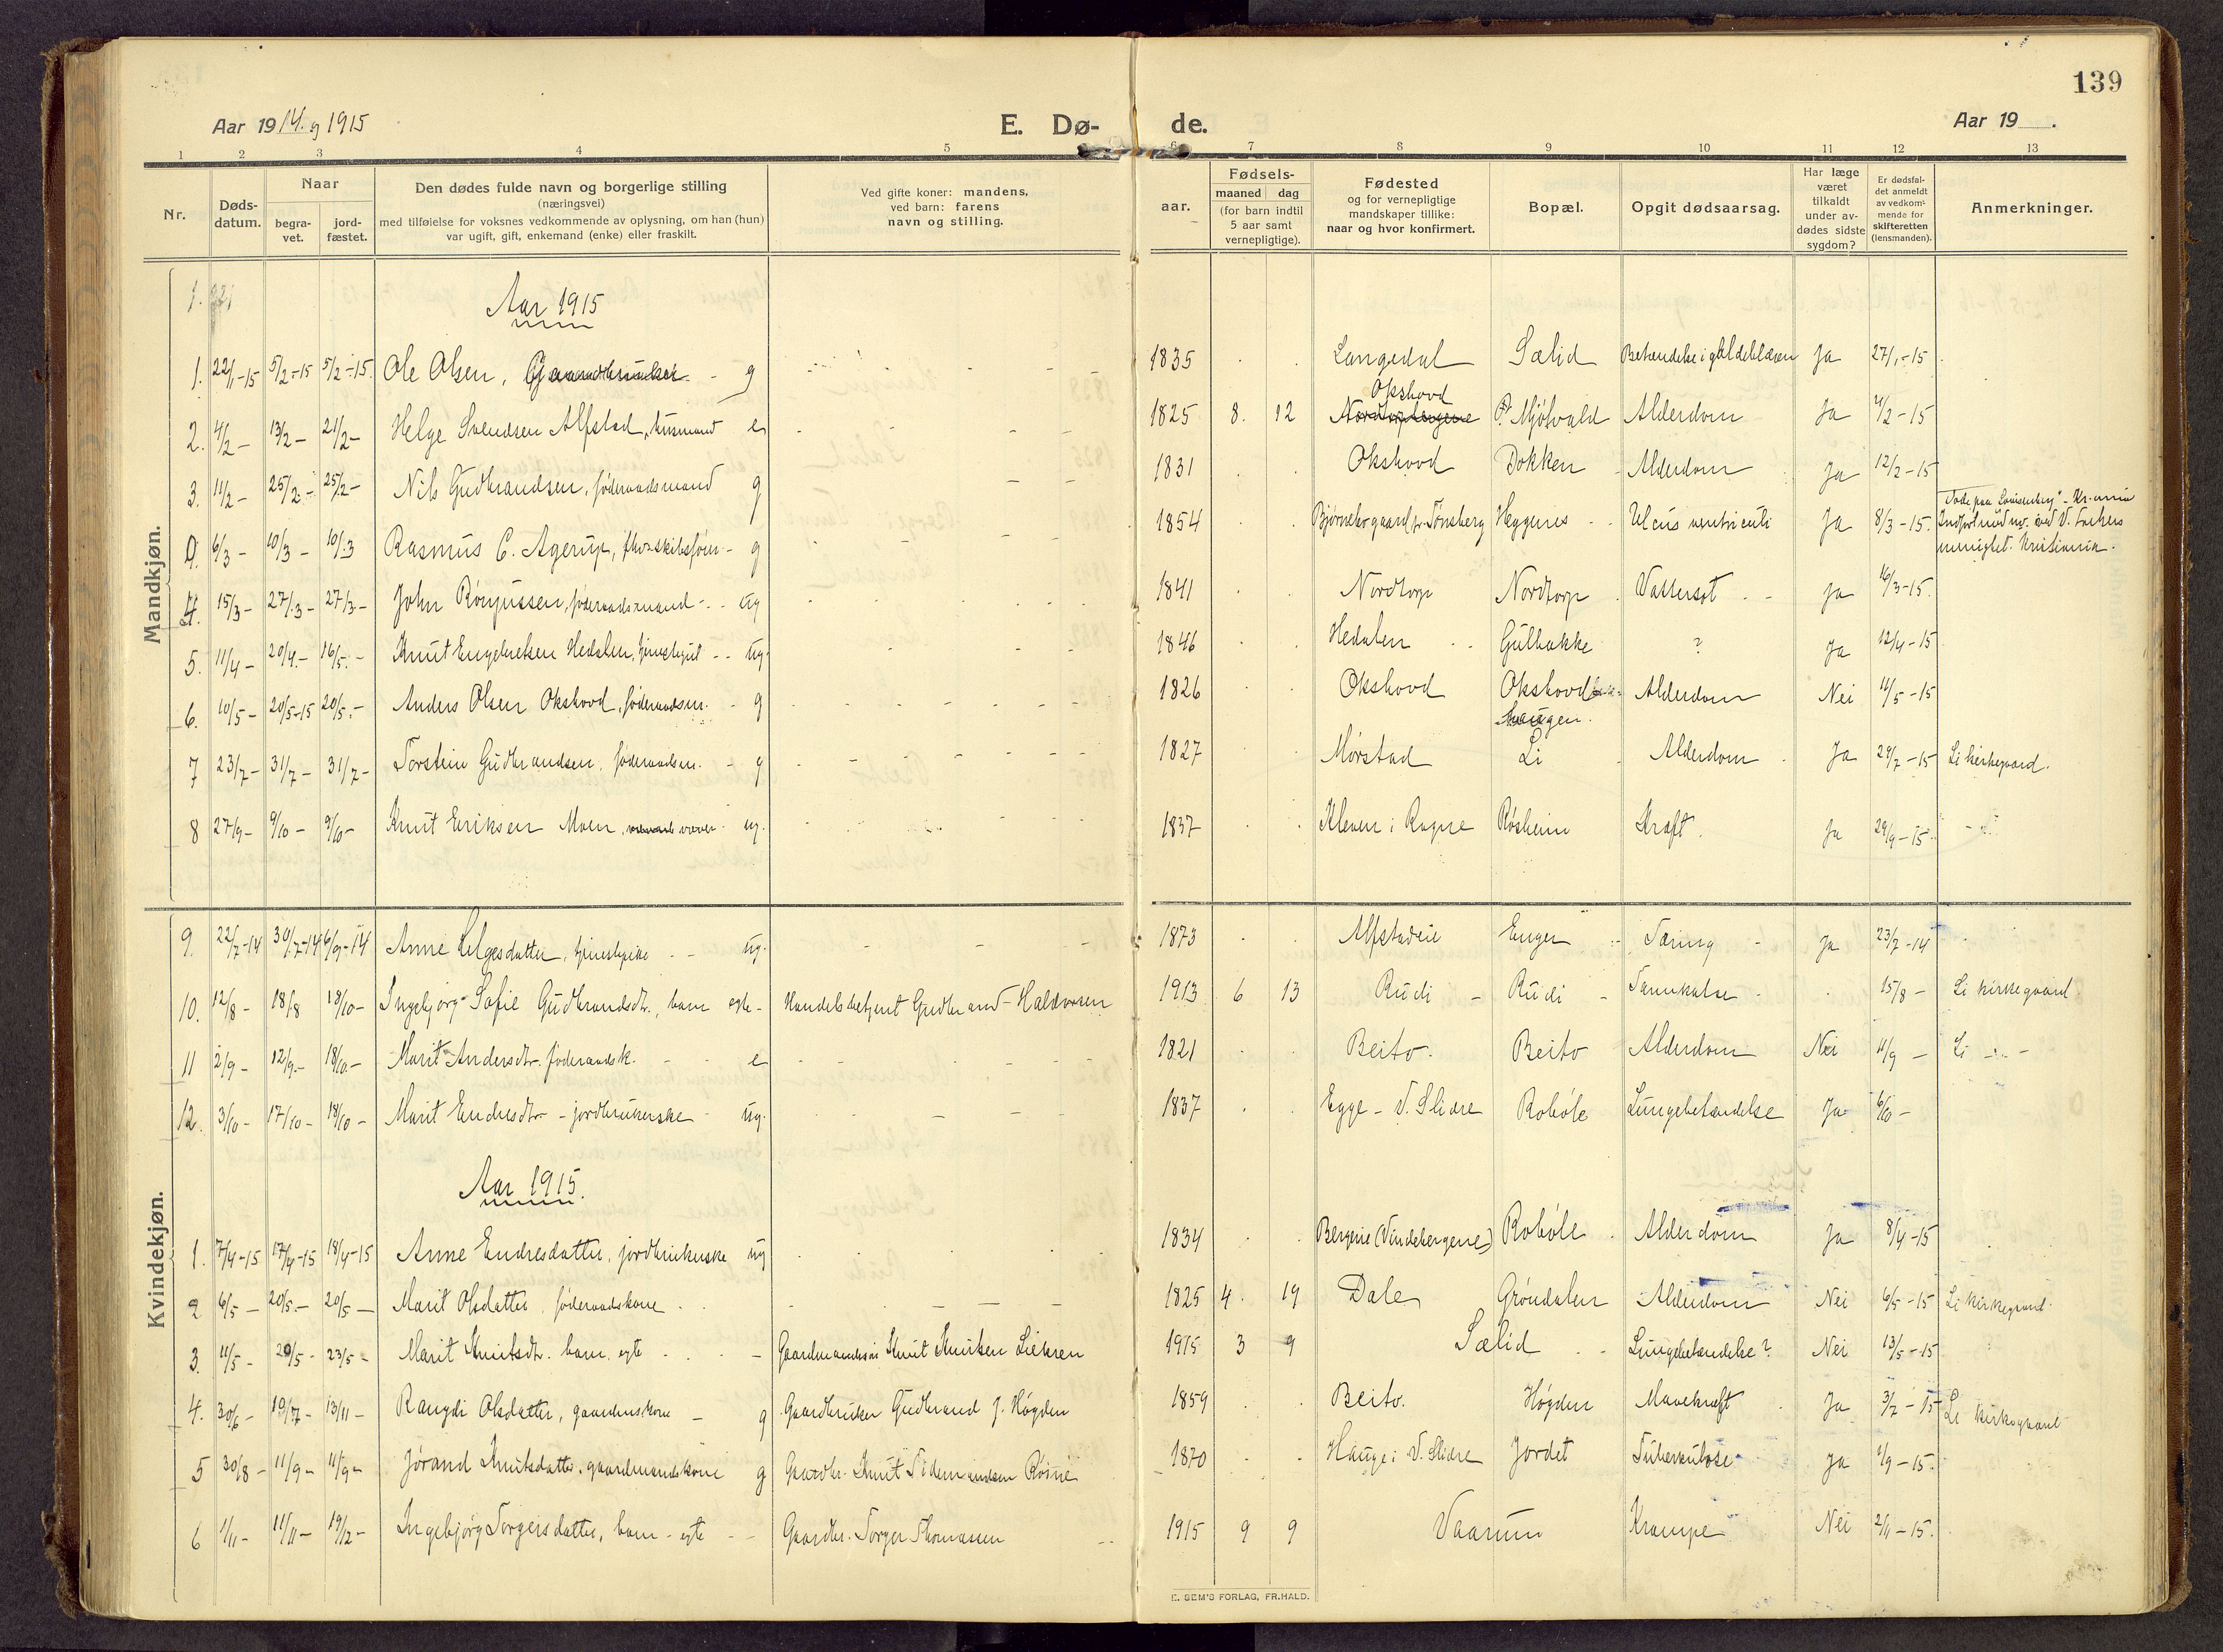 139
Aar 1914. og 1915
E. Dø- de.
Aar 19 .
1 2 3 4 5 6 7 8 9 10 11 12 13
Nr.
Døds-
datum.
Naar
begra-
vet.
jord-
fæstet.
Den dødes fulde navn og borgerlige stilling
(næringsvei)
med tilføielse for voksnes vedkommende av oplysning, om han (hun)
var ugift, gift, enkemand (enke) eller fraskilt.
Ved gifte koner: mandens,
ved barn: farens
navn og stilling.
aar.
Fødsels-
maaned dag
(for barn indtil
5 aar samt
vernepligtige).
Fødested
og for vernepligtige
mandskaper tillike:
naar og hvor konfirmert.
Bopæl.
Opgit dødsaarsag.
Har læge
været
tilkaldt
under av-
dødes sidste
sygdom?
Er dødsfal-
det anmeldt
av vedkom-
mende for
skifteretten
(lensmanden).
Anmerkninger.
Mandkjøn.
1.
Aar 1915
1. 22/1-15 5/2-15 5/2-15. Ole Olsen, Gaardbruker - g 1835 Langedal Sælid Betændelse i galdeblæren Ja 27/1-15
Okshovd
2. 4/2- 13/2- 21/2- Helge Svendsen Alfstad, husmand e 1825 8. 12 Mjølvald Alderdom Ja 4/2-15
3. 11/2- 25/2- 25/2- Nils Gudbrandsen, føderaadsmand g 1831 Okshovd Dokken Alderdom Ja 12/2-15
0. 6/3- 10/3- 10/3 Rasmus C. Agerup, - g 1854 Bjørnebogaard pr. Tønsberg Heggenes Ulcus ventriculi Ja 8/3-15.
Kristiania.
4. 15/3- 27/3- 27/3- John føderaadsmand - ug 1841 Nordtorp Nordtorp Vattersot Ja 16/3-15.
5. 11/4- 20/4- 16/5- Knut Engebretsen Hedalen, tjenestegut - ug 1846 Hedalen Gulbakke ? Ja 12/4-15
6. 10/5- 20/5-15 20/5- Anders Olsen Okshovd, føderaadsm. - g 1826 Okshovd Okshovd Alderdom Nei 11/5-15
haugen.
7 23/7- 31/7- 31/7- Torstein Gudbrandsen, føderaadsm. - g 1827 Mørstad Li Alderdom Ja 29/7-15 Li kirkegaard.
8 27/9- 9/10- 9/10- Knut Eriksen Moen, ug. 1837 Kleven i Rogne Røsheim Kræft. Ja 29/9-15
Kvindekjøn.
9. 22/7-14 30/7-14 6/9-14 Anne Helgesdatter, tjenestepike - ug. 1873 Alfstadeie Enger Tæring Ja 23/7-14
10. 12/8- 18/8 18/10- Ingebjørg Sofie Gudbrandsdtr., barn egte - Handelsbetjent Gudbrand Haldorsen 1913 6 13 Rudi Rudi 15/8- Li kirkegaard
11 2/9- 12/9- 18/10- Marit Andersdtr. føderaadsk. - e 1821 Beito. Beito Alderdom Nei 11/9- Li -"-
12. 3/10- 17/10- 18/10- Marit Endresdtr - jordbrukerske - ug. 1837 Egge - V. Slidre Robøle Lungebetændelse Ja 6/10-
Aar 1915.
1. 7/4-15 17/4-15 18/4-15 Anne Endresdatter, jordbrukerske ug 1834 Bergene (Vindebergene) Robøle Alderdom Ja 8/4-15
2 6/5- 20/5- 20/5- Marit Olsdatter, føderaadskone 1825 4. 19 Dale Grøndalen Alderdom Nei 6/5-15 Li kirkegaard.
3. 11/5- 20/5- 23/5- Marit Knutsdtr. barn, egte - Gaardmandssøn Knut Knutsen 1915 3 9 Sælid Lungebetændelse? Nei 13/5-15
4. 30/6- 10/7- 13/11- Rangdi Olsdatter, gaardmskone - g Gaardbruker Gudbrand J. Høgden 1859 Beito. Høgden Mavekræft Ja 3/7-15 Li kirkegaard
5 30/8- 11/9- 11/9- Jørand Knutsdatter, gaardmandskone g Gaardbr. Knut 1870 Hauge i V. Slidre Jordet Tuberkulose Ja 1/9-15.
6 1/11- 11/11- 19/12- Ingebjørg Torgersdatter, barn - egte - Gaardbr. Torger Thomassen 1915 9 9 Vaarum Krampe Nei 2/11-15.
E. SEM'S FORLAG, FR.HALD.